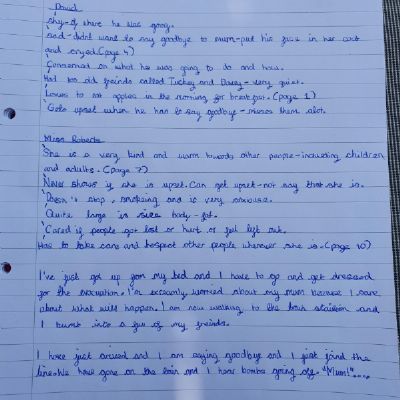 David
shy - of where he was going.
Sad - didn't want to say goodbye to mum - put his face in her coat
and cryed. (page 4)
Concerned on what he was going to do and how.
Had two old freinds called Tuckey and Davey - very quiet.
Loves to eat apples in the morning for breakfast. (page 1)
Gets upset when he has to say goodbye - misses them alot.
Miss Roberts
She is a very kind and warm towards other people - including children
and adults. (page 7)
Never shows if she is upset. Can get upset - not say that she is.
Doesn't stop smoking and is very anxiouse.
Quite large in size body - fat.
Cared if people got lost or hurt or feel left out.
Has to take care and respect other people whenever she is. (page 10)
I've just got up from my bed and I have to go and get dressed
for the evacuation. I'm extremly worried about my mum because I care
about what will happen. I am now walking to the train staision and
I bump into a few of my freinds.
I have just arived and I am saying goodbye and I just joind the
line. We have gone on the train and I hear bombs going off. "Mum!"....